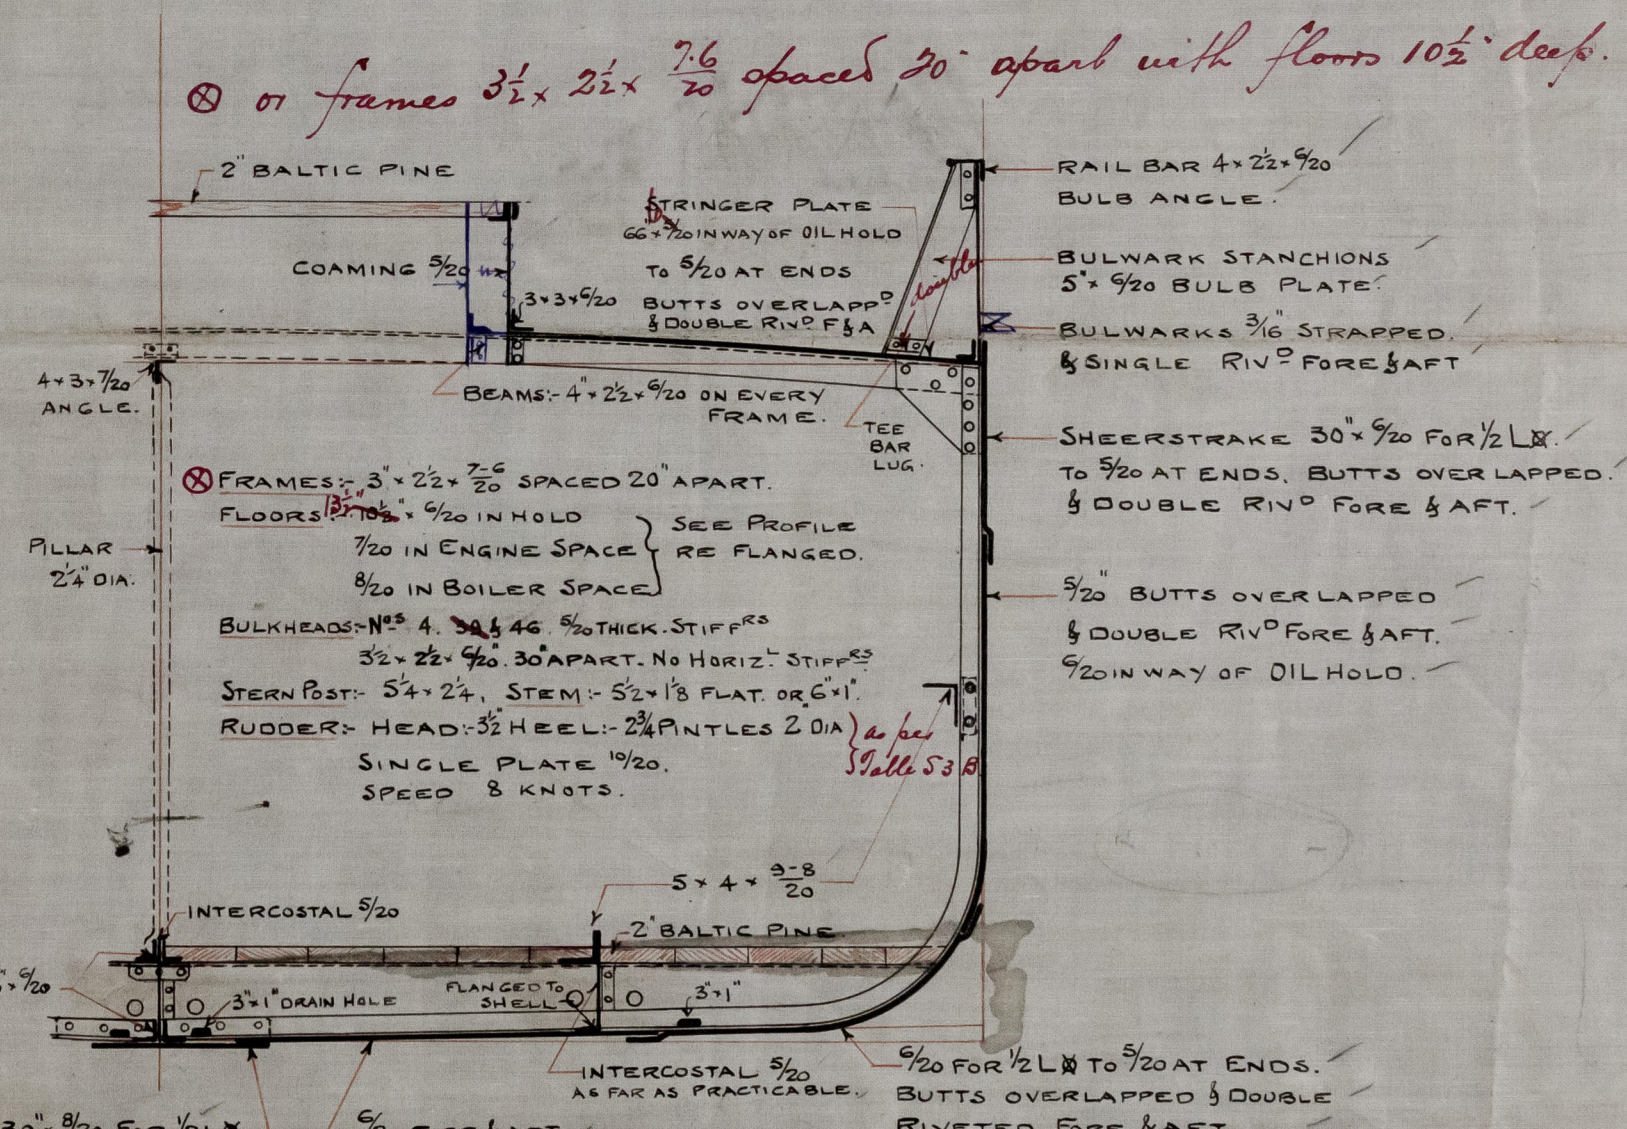 ⊗ or frames 3½ × 2½ × 7.6/20 spaced 20" apart with floors 10½" deep.
2" BALTIC PINE
COAMING 5/20
3×3×6/20
STRINGER PLATE
66"× 5/20 IN WAY OF OIL HOLD
TO 5/20 AT ENDS
BUTTS OVERLAPPᴰ
& DOUBLE RIVᴰ F & A
double
RAIL BAR 4×2½×6/20
BULB ANGLE.
BULWARK STANCHIONS
5"× 6/20 BULB PLATE.
BULWARKS 3/16" STRAPPED.
& SINGLE RIVᴰ FORE & AFT
4×3×7/20
ANGLE.
BEAMS:- 4"×2½×6/20 ON EVERY
FRAME.
TEE
BAR
LUG.
SHEERSTRAKE 30"× 6/20 FOR ½ L
TO 5/20 AT ENDS. BUTTS OVERLAPPED.
& DOUBLE RIVᴰ FORE & AFT.
⊗ FRAMES:- 3"× 2½× 7-6/20 SPACED 20" APART.
FLOORS:- 13½" 10½"× 6/20 IN HOLD
7/20 IN ENGINE SPACE
8/20 IN BOILER SPACE
SEE PROFILE
RE FLANGED.
BULKHEADS:- Nᵒˢ 4. 39 & 46. 5/20 THICK. STIFFᴿˢ
3½× 2½× 6/20". 30" APART. NO HORIZᴸ STIFFᴿˢ
STERN POST:- 5¼× 2¼, STEM:- 5½×1⅛ FLAT. OR 6"×1".
RUDDER:- HEAD:- 3½" HEEL:- 2¾ PINTLES 2" DIA
SINGLE PLATE 10/20.
SPEED 8 KNOTS.
as per
Table S3 B
PILLAR
2¼" DIA.
5/20" BUTTS OVERLAPPED
& DOUBLE RIVᴰ FORE & AFT.
6/20 IN WAY OF OIL HOLD.
5 × 4 × 9-8/20
INTERCOSTAL 5/20
2" BALTIC PINE
"× 6/20
3"×1" DRAIN HOLE
FLANGED TO
SHELL
3"×1"
INTERCOSTAL 5/20
AS FAR AS PRACTICABLE.
6/20 FOR ½ L TO 5/20 AT ENDS.
BUTTS OVERLAPPED & DOUBLE
RIVETED FORE & AFT